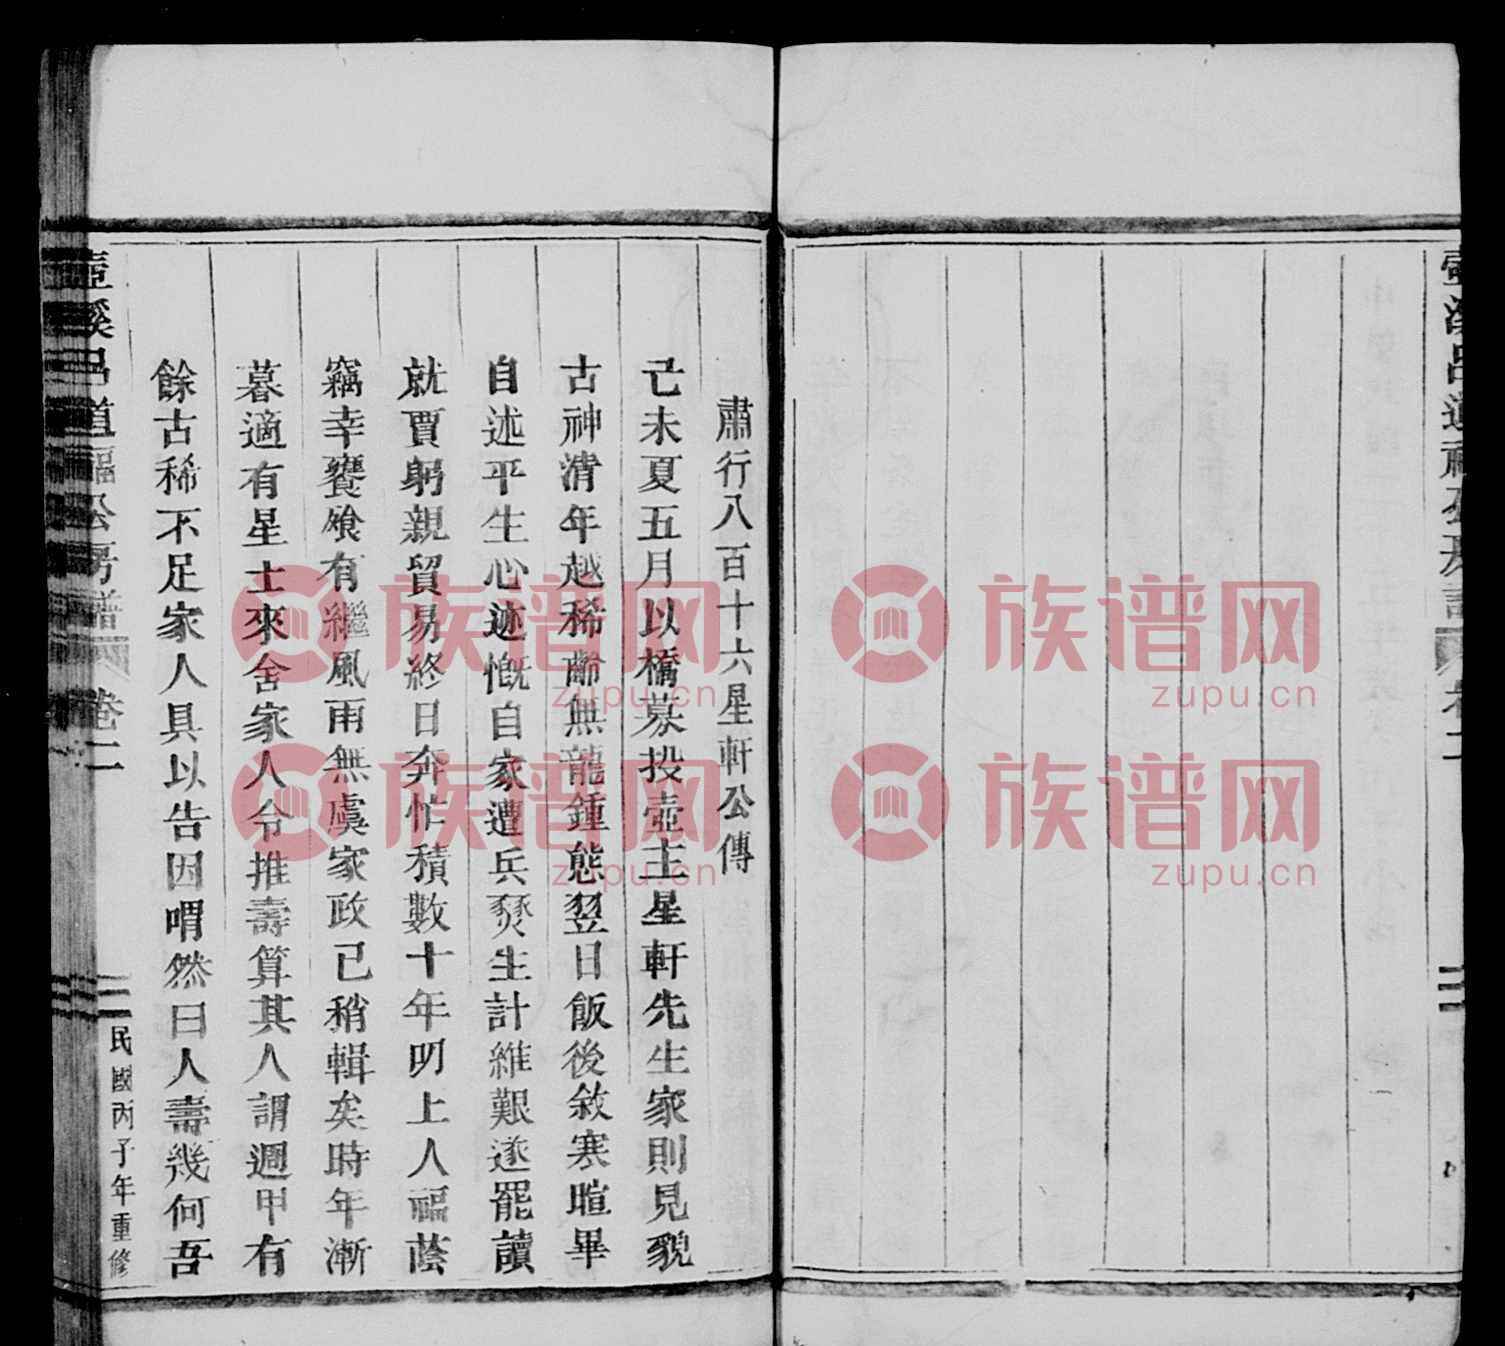 壺溪呂道福公房譜 卷二
肅行八百十六星軒公傳
己未夏五月以橋募投壺主星軒先生家則見貌
古神清年越稀齡無龍鍾態翌日飯後敘寒暄畢
自述平生心迹慨自家遭兵燹生計維艱遂罷讀
就賈躬親貿易終日奔忙積數十年叨上人福蔭
竊幸饔飧有繼風雨無虞家政已稍輯矣時年漸
暮適有星士來舍家人令推壽算其人謂週甲有
餘古稀不足家人具以告因喟然曰人壽幾何吾
壺溪呂道福公房譜 卷二
民國丙子年重修
族谱网
zupu.cn
族谱网
zupu.cn
族谱网
zupu.cn
族谱网
zupu.cn